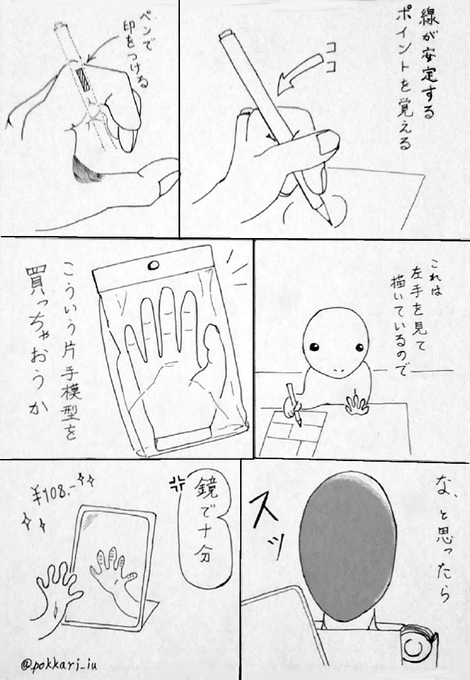 線が安定する
ポイントを覚える
ココ
ペンで
印をつける
これは
左手を見て
描いているので
こういう片手模型を
買っちゃおうか
な、と思ったら
スッ
鏡で十分
¥108.-
@pokkari_iu